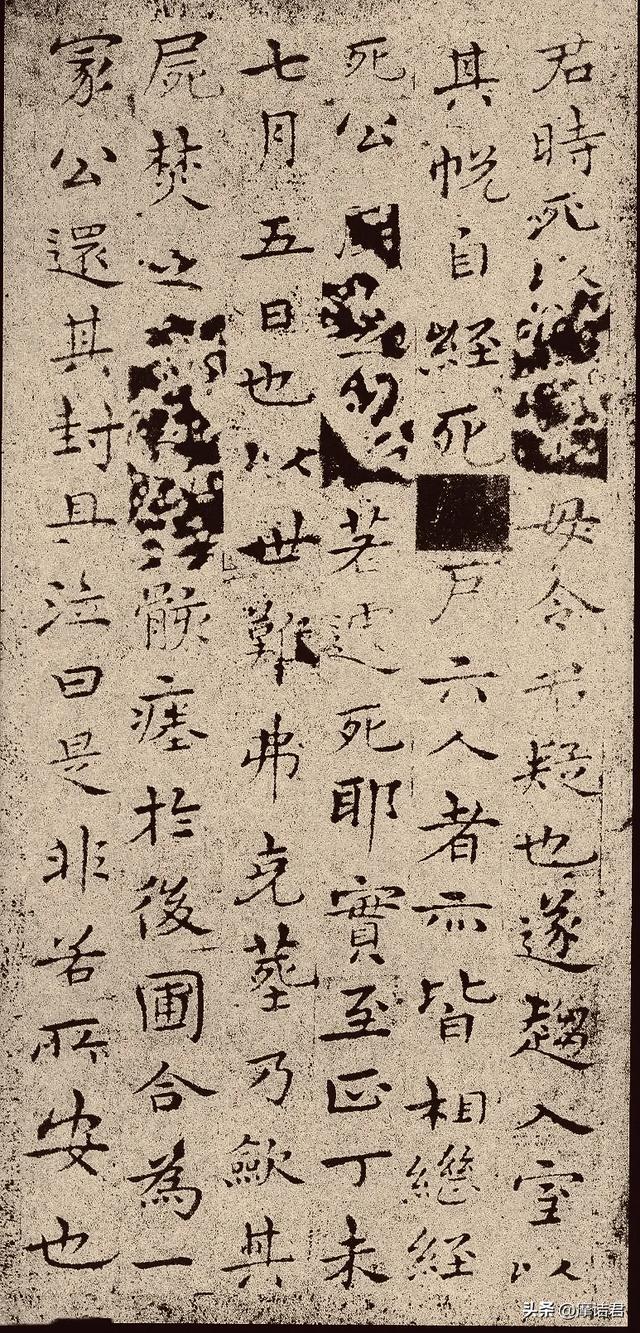 君時死以毋令君疑也遂趨入室以
其帨自經死戶六人者亦皆相繼經
死公若遽死耶實至正丁未
七月五日也以世難弗克葬乃斂其
屍焚之骸瘞於後圃合為一
冢公還其封且泣曰是非若所安也
头条 @犀语君